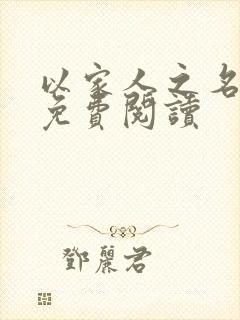 以家人之名
免費閱讀
鄧麗君